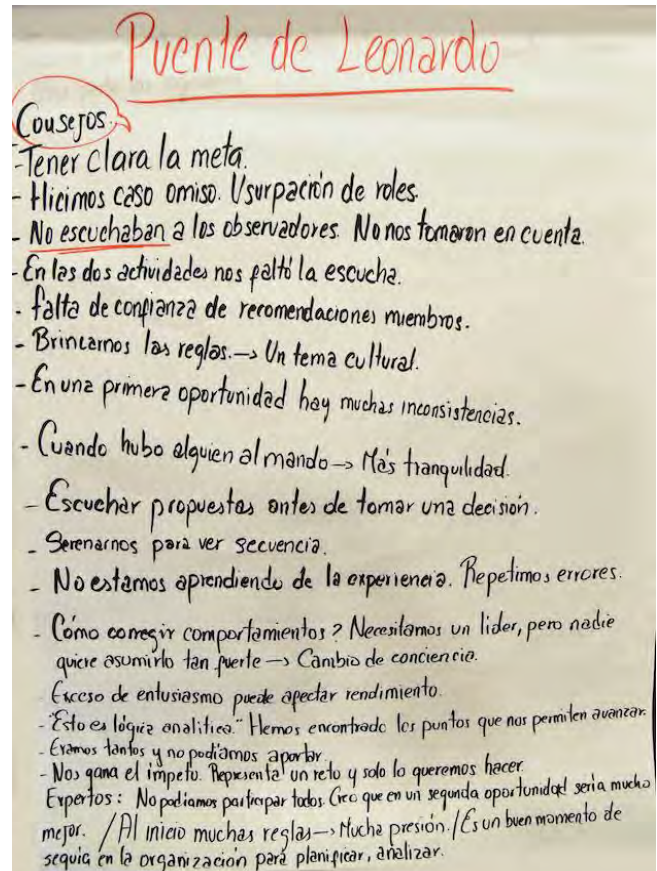 Puente de Leonardo
Consejos.
- Tener clara la meta.
- Hicimos caso omiso. Usurpación de roles.
- No escuchaban a los observadores. No nos tomaron en cuenta.
- En las dos actividades nos faltó la escucha.
- falta de confianza de recomendaciones miembros.
- Brincarnos las reglas. → Un tema cultural.
- En una primera oportunidad hay muchas inconsistencias.
- Cuando hubo alguien al mando → Más tranquilidad.
- Escuchar propuestas antes de tomar una decisión.
- Serenarnos para ver secuencia.
- No estamos aprendiendo de la experiencia. Repetimos errores.
- Cómo corregir comportamientos? Necesitamos un lider, pero nadie
quiere asumirlo tan fuerte → Cambio de conciencia.
- Exceso de entusiasmo puede afectar rendimiento.
- "Esto es lógica analítica." Hemos encontrado los puntos que nos permiten avanzar.
- Eramos tantos y no podíamos aportar.
- Nos gana el ímpetu. Representa un reto y solo lo queremos hacer.
Expertos: No podiamos participar todos. Creo que en un segunda oportunidad sería mucho
mejor. / Al inicio muchas reglas → Mucha presión. / Es un buen momento de
sequía en la organización para planificar, analizar.